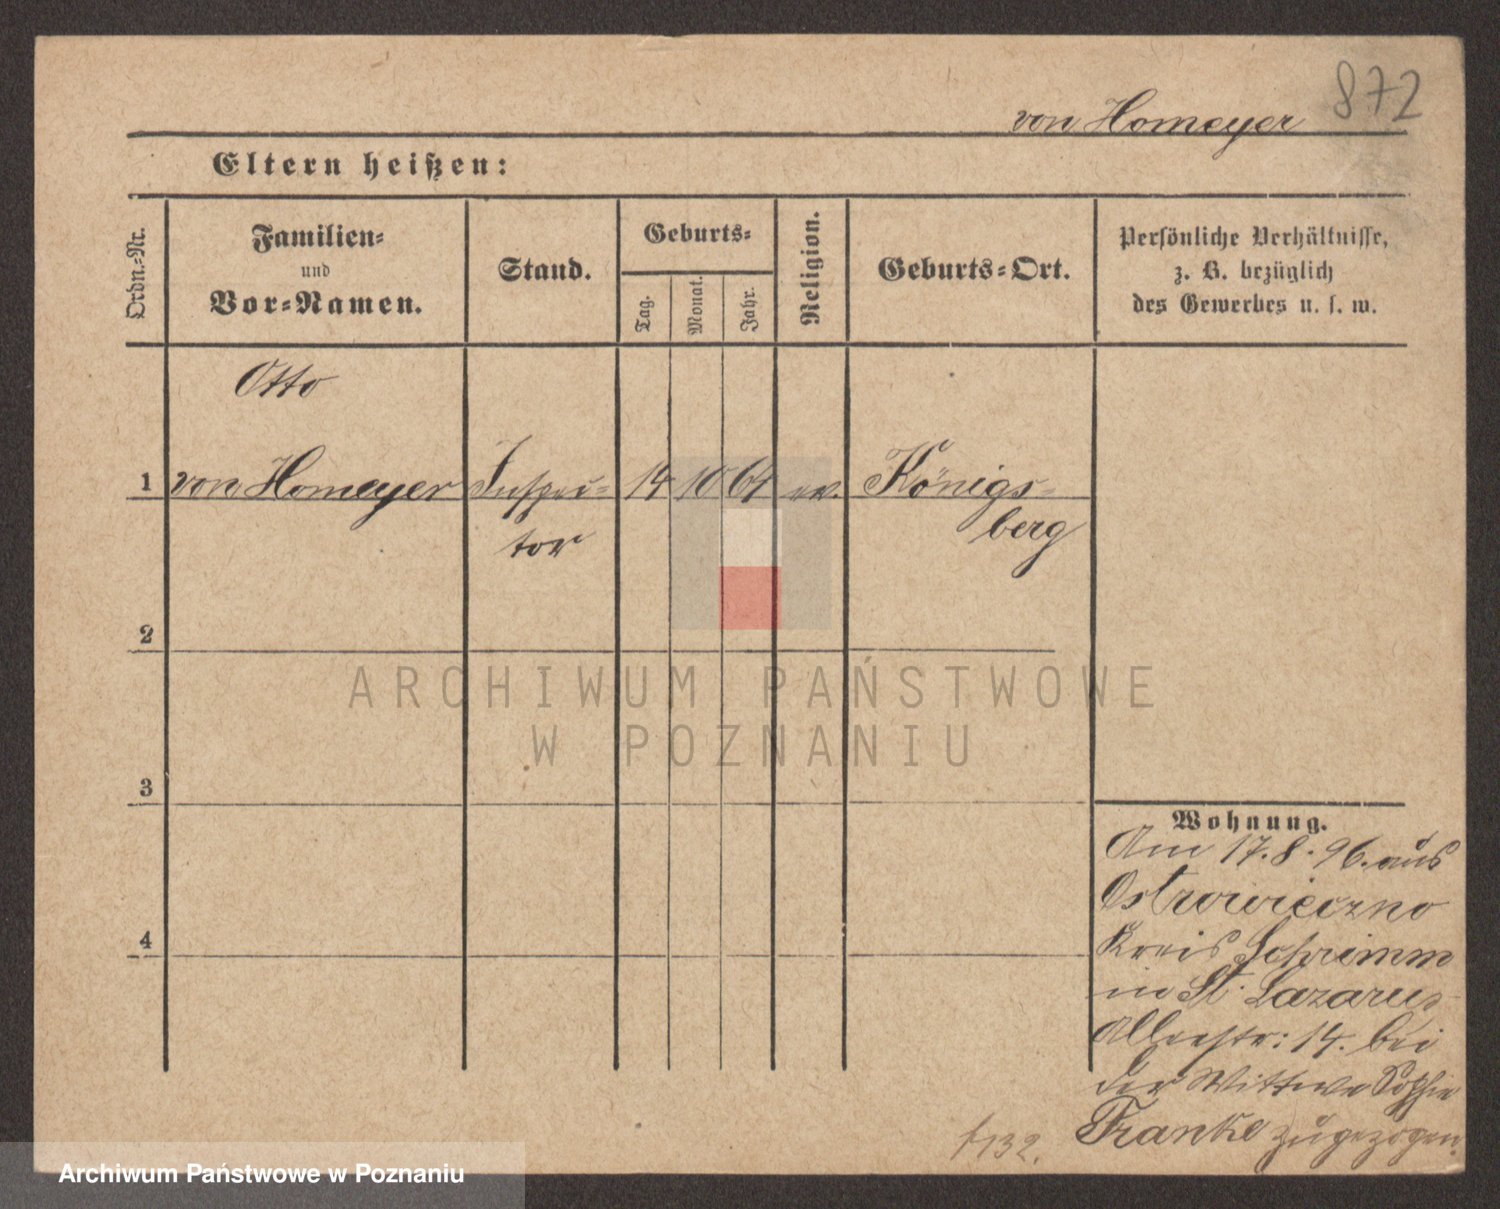 872
von Homeyer
Eltern heißen:
Ordn.-Nr.
Familien-
und
Vor-Namen.
Stand.
Geburts-
Tag.
Monat.
Jahr.
Religion.
Geburts-Ort.
Persönliche Verhältnisse,
z. B. bezüglich
des Gewerbes u. s. w.
Otto
1 von Homeyer Inspec- 14 10 64 ev. Königs-
tor berg
2
3
4
Wohnung.
Am 17.8.96. aus
Ostrowieczno
Kreis Schrimm
in St. Lazarus
Alleestr: 14. bei
der Wittwe Sophie
Franke zugezogen.
132.
ARCHIWUM PAŃSTWOWE
W POZNANIU
Archiwum Państwowe w Poznaniu